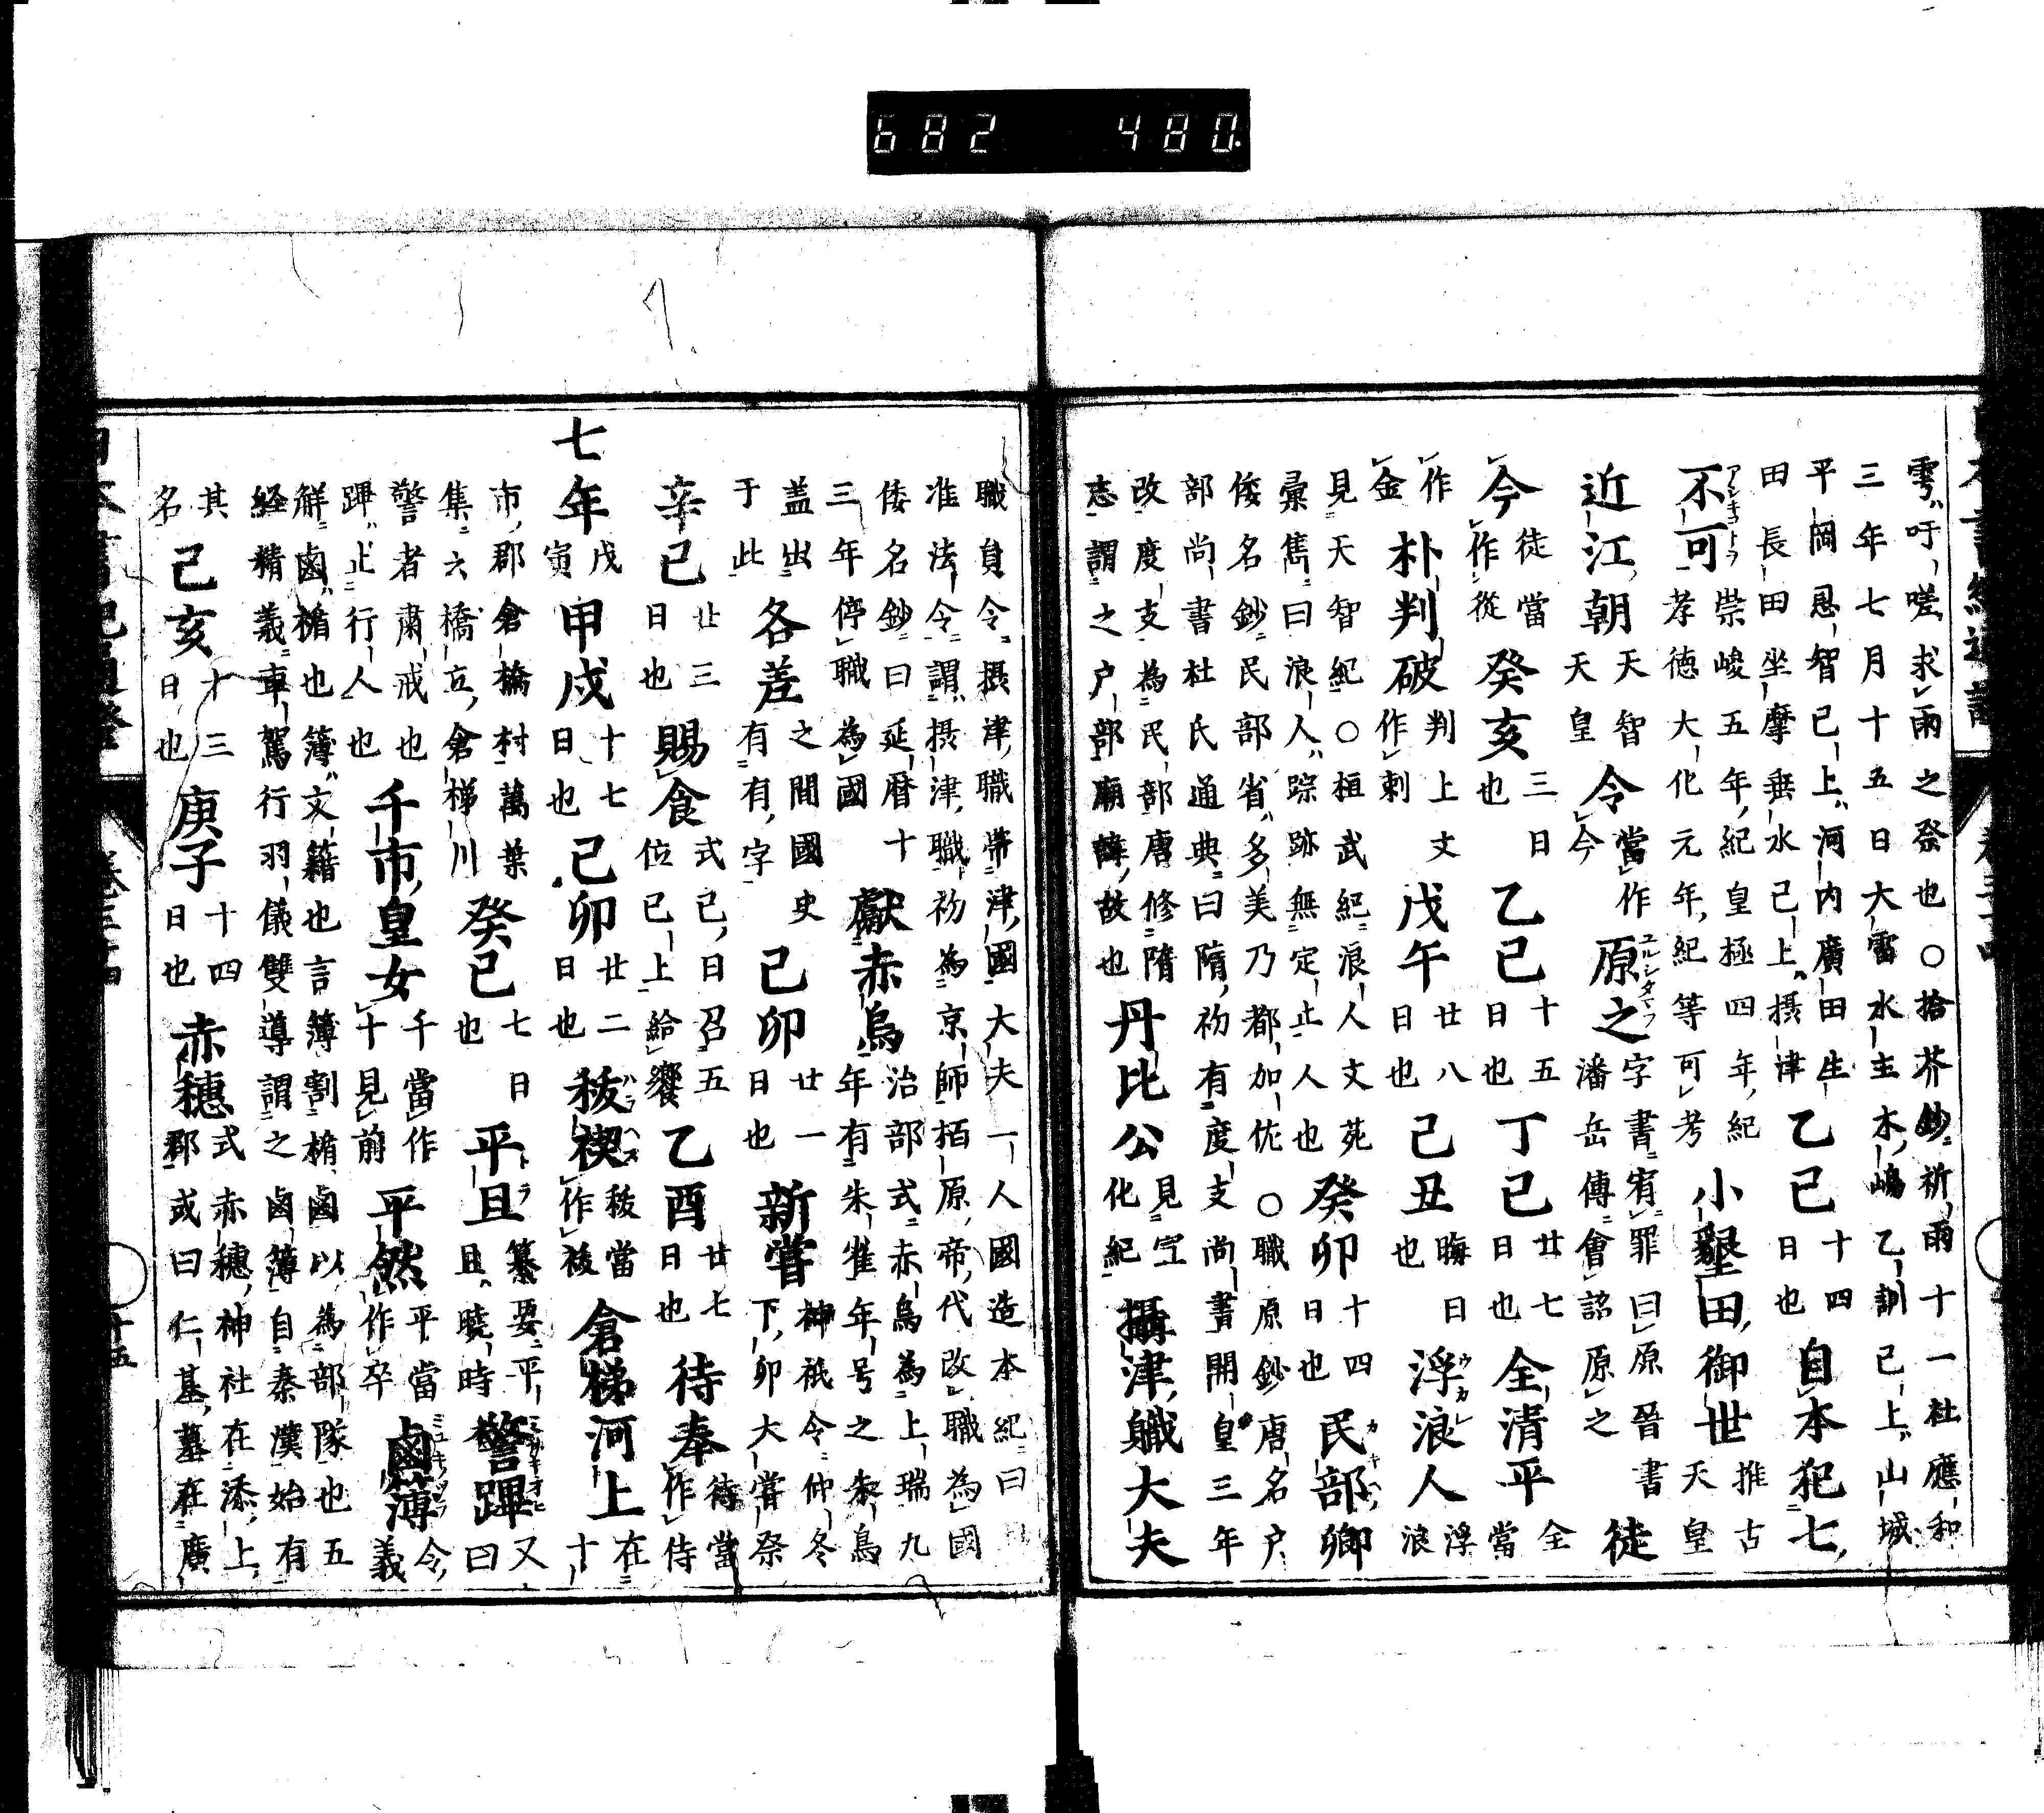 682 480
雩吁嗟求雨之祭也○拾芥鈔祈雨十一社應和
三年七月十五日大雷水主木嶋乙訓已上山城
平岡恩智已上河内廣田生
田長田坐摩垂水已上攝津 乙巳十四日也 自本犯七
不可アシキコトヲ 崇峻五年紀皇極四年紀
孝徳大化元年紀等可考 小墾田御世推古天皇
近江朝天智天皇 令當作今 原之ユルシタマフ 字書宥罪曰原晉書
潘岳傳會詔原之 徒
今徒當作從 癸亥三日也 乙巳十五日也 丁巳廿七日也 全清平全當
作金 朴判破判上文作刺 戊午廿八日也 己丑晦日也 浮浪人ウカレ 浮浪
見天智紀○桓武紀浪人文苑
彙雋曰浪人踪跡無定止人也 癸卯十四日也 民部卿カキベ
倭名鈔民部省多美乃都加佐○職原鈔唐名戸
部尚書杜氏通典曰隋初有度支尚書開皇三年
改度支為民部唐修隋
志謂之戸部廟諱故也 丹比公見宣化紀 攝津職大夫
職員令攝津職帶津國大夫一人國造本紀曰
准法令謂攝津職初為京師栢原帝代改職為國
倭名鈔曰延暦十
三年停職為國 獻赤烏治部式赤烏為上瑞九
年有朱雀年号之朱鳥
蓋出
于此 各差之間國史
有有字 己卯廿一日也 新嘗神祇令仲冬
下卯大嘗祭
辛巳廿三日也 賜食式已日召五
位已上給饗 乙酉廿七日也 待奉待當作侍
七年戊寅 甲戌十七日也 己卯廿二日也 秡禊ハラヘス 秡當作後 倉梯河上在十
市郡倉橋村萬葉
集六橋立倉梯川 癸巳七日也 平旦トラ 纂要平旦曉時 警蹕ミサキオヒ 又曰
警者肅戒也
蹕止行人也 千市皇女千當作十見前 平然平當作卒 鹵簿ミユキノツラ 令義
解鹵楯也簿文籍也言簿割楯鹵以為部隊也五
経精義車駕行羽儀雙導謂之鹵簿自秦漢始有
其名 己亥十三日也 庚子十四日也 赤穂式赤穂神社在添上
郡或曰仁基墓在廣